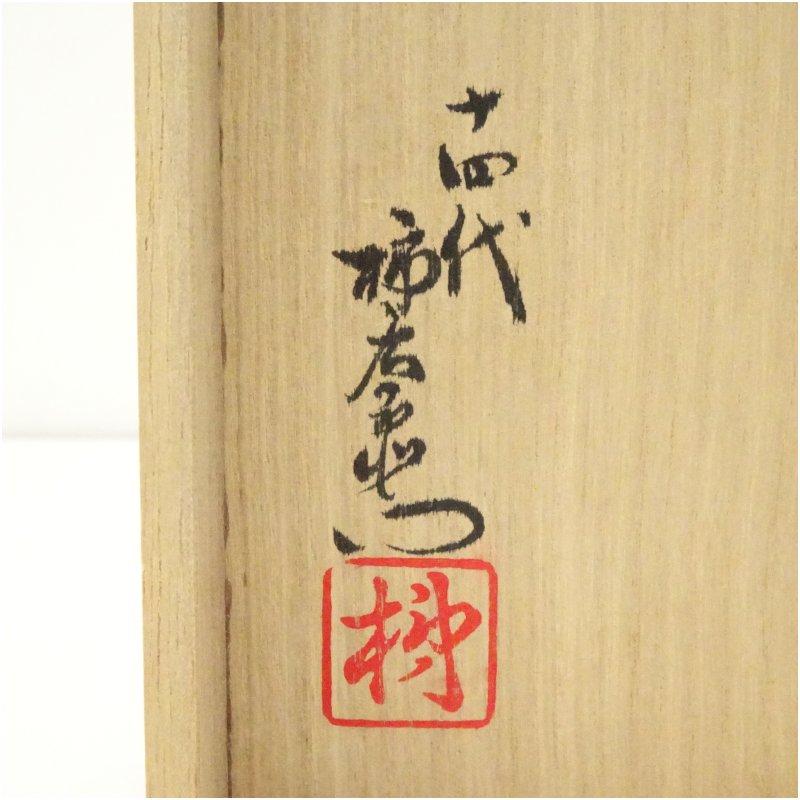 十四代
柿右衛門
柿